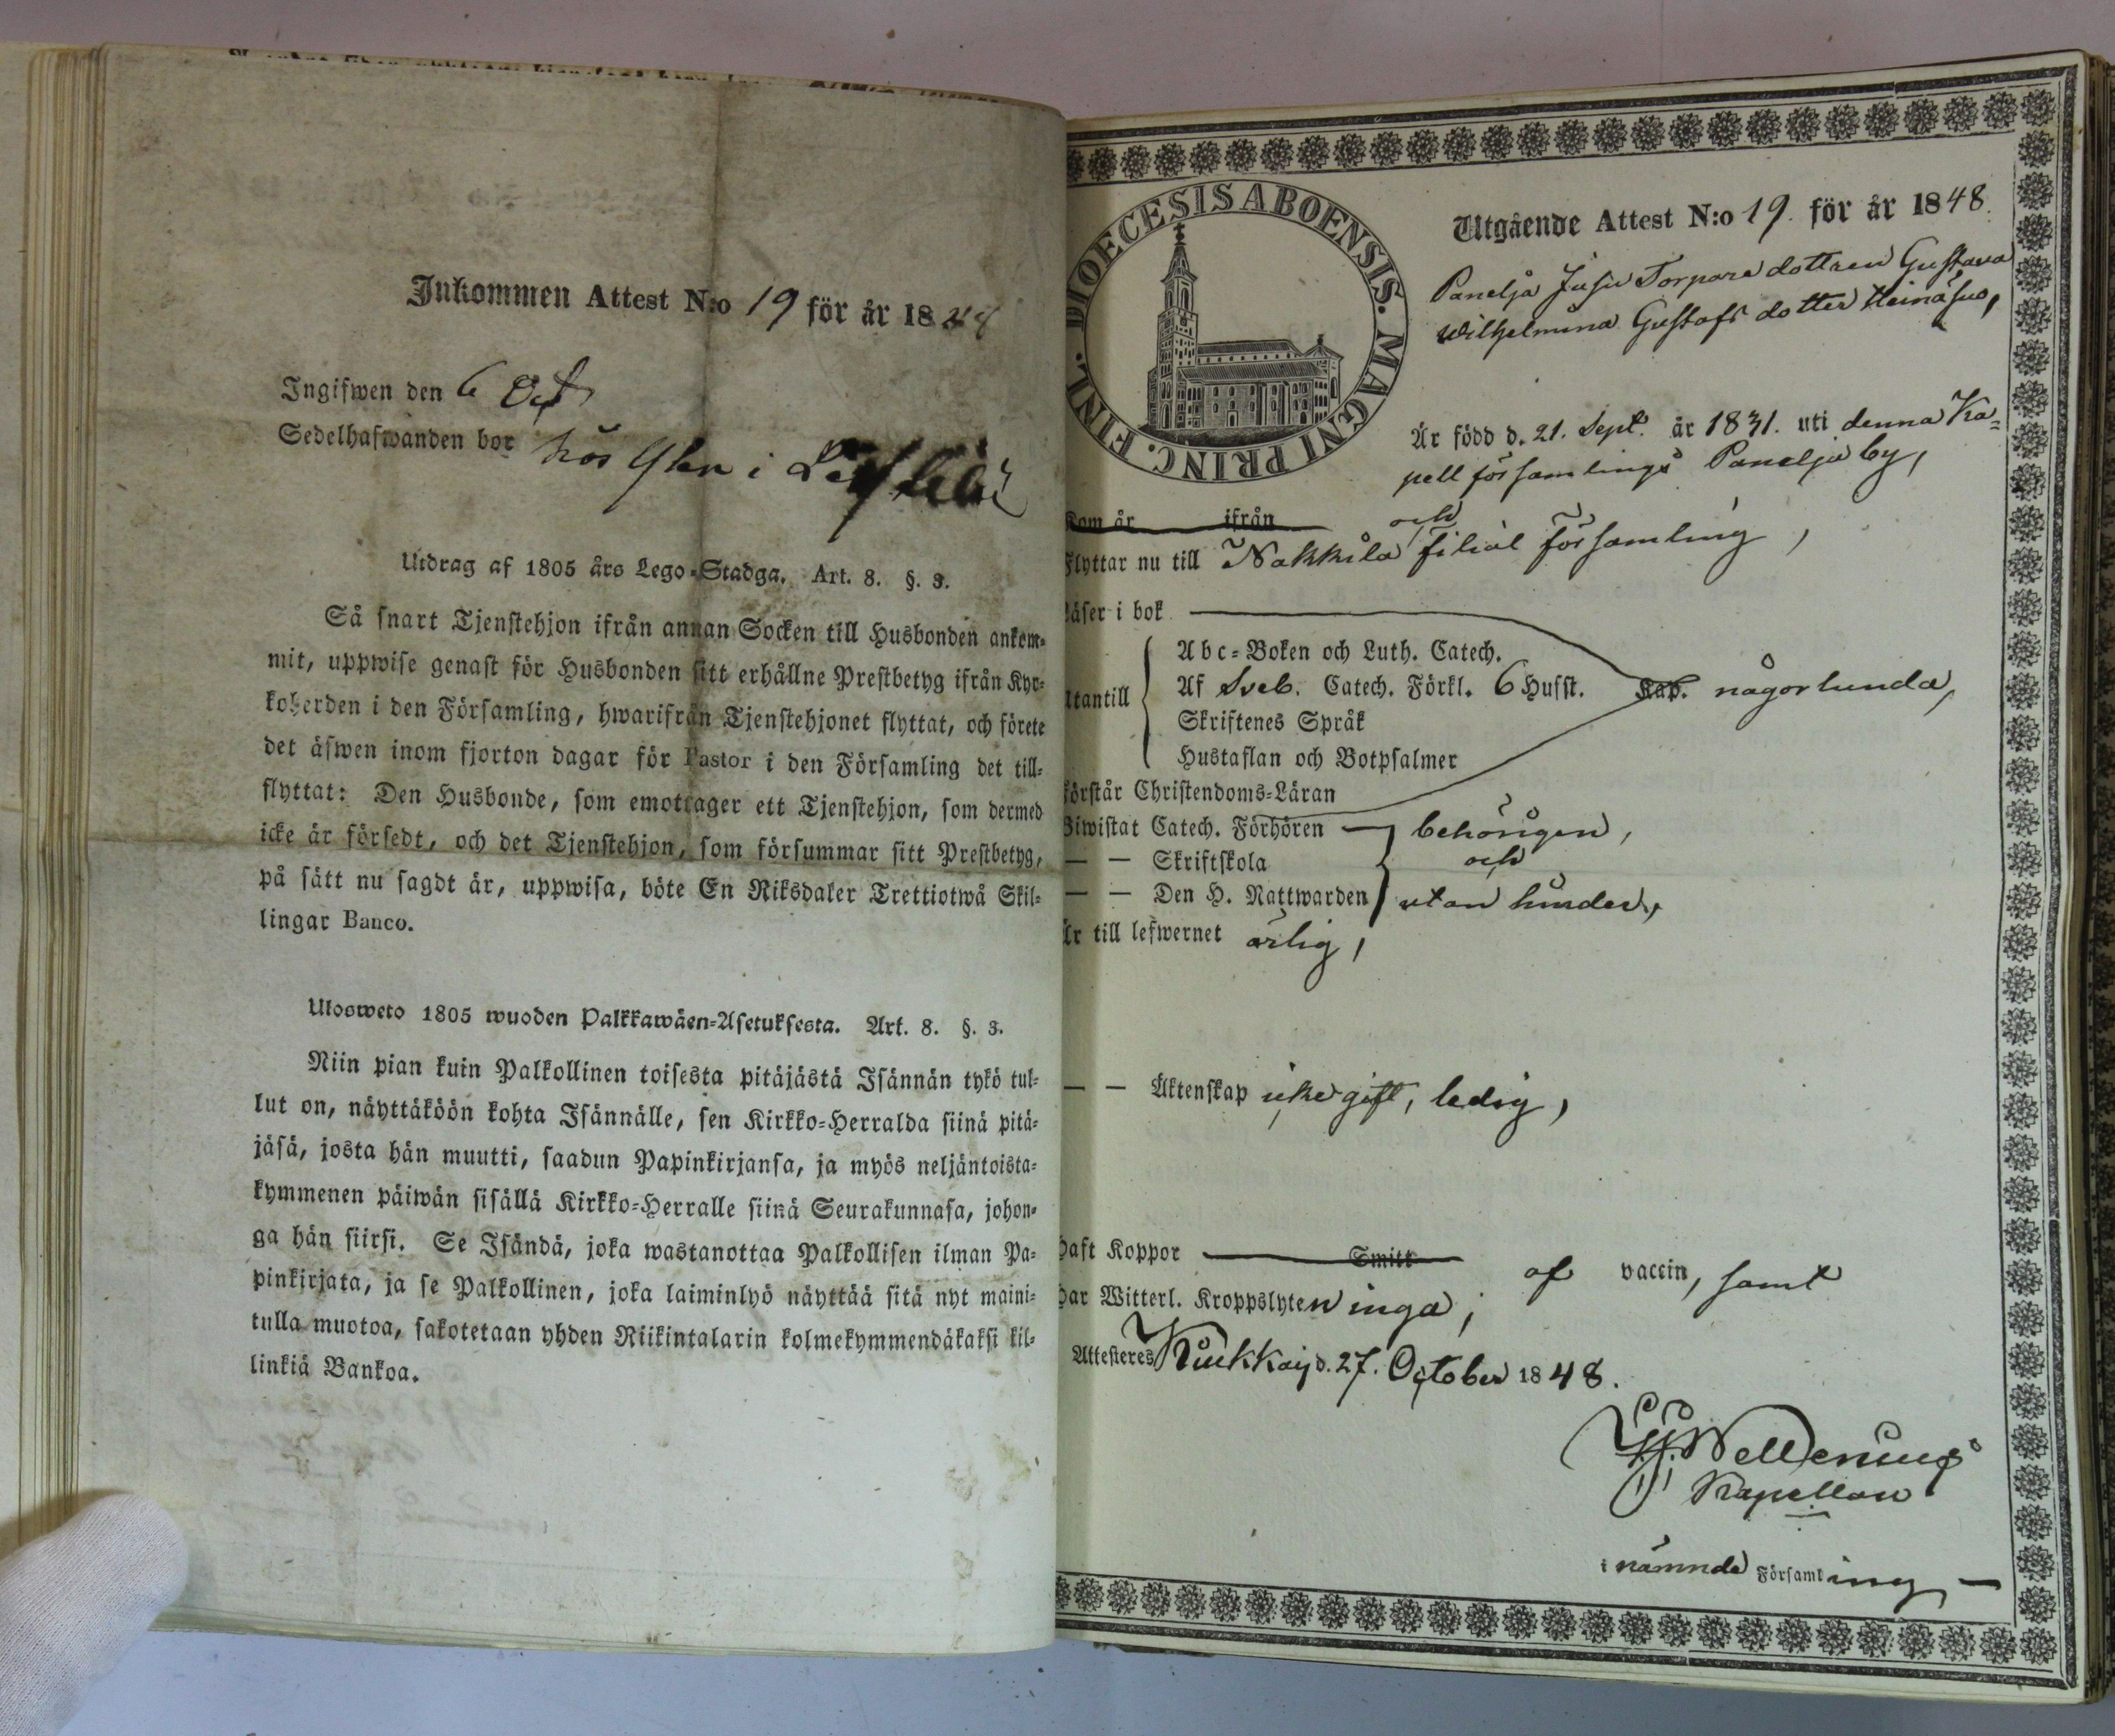 Inkommen Attest N:o 19 för år 1848
Ingifwen den 6 Oct
Sedelhafwanden bor hos i
Utdrag af 1805 års Lego-Stadga. Art. 8. §. 3.
Så snart Tjenstehjon ifrån annan Socken till Husbonden ankom-
mit, uppwise genast för Husbonden sitt erhållne Prestbetyg ifrån Kyr-
koherden i den Församling, hwarifrån Tjenstehjonet flyttat, och förete
det äfwen inom fjorton dagar för Pastor i den Församling det till-
flyttat: Den Husbonde, som emottager ett Tjenstehjon, som dermed
icke är försedt, och det Tjenstehjon, som försummar sitt Prestbetyg,
på sätt nu sagdt är, uppwisa, böte En Riksdaler Trettiotwå Skil-
lingar Banco.
Ulosweto 1805 wuoden Palkkawäen-Asetuksesta. Art. 8. §. 3.
Niin pian kuin Palkollinen toisesta pitäjästä Isännän tykö tul-
lut on, näyttäköön kohta Isännälle, sen Kirkko-Herralda siinä pitä-
jäsä, josta hän muutti, saadun Papinkirjansa, ja myös neljäntoista-
kymmenen päiwän sisällä Kirkko-Herralle siinä Seurakunnasa, johon-
ga hän siirsi. Se Isändä, joka wastanottaa Palkollisen ilman Pa-
pinkirjata, ja se Palkollinen, joka laiminlyö näyttää sitä nyt maini-
tulla muotoa, sakotetaan yhden Riikintalarin kolmekymmendäkaksi kil-
linkiä Bankoa.
FINL. DIOECESIS ABOENSIS. MAGNI PRINC.
Utgående Attest N:o 19. för år 1848.
Panelja Jusu Torpare dottren Gustava
Wilhelmina Gustafs dotter Heinäsuo,
Är född d. 21. Sept. år 1831. uti denna Ka-
pell församlings Panelja by,
Kom år ifrån
och
Flyttar nu till Nakkila filial församling,
Läser i bok
Abc-Boken och Luth. Catech.
Utantill Af Sveb. Catech. Förkl. 6 Husst. Kap. någorlunda,
Skriftenes Språk
Hustaflan och Botpsalmer
Förstår Christendoms-Läran
Biwistat Catech. Förhören behörigen,
— — Skriftskola och
— — Den H. Nattwarden utan hinder,
Är till lefwernet ärlig,
— — Äktenskap icke gift, ledig,
Haft Koppor Smitt af vaccin, samt
Har Witterl. Kroppslyten inga;
Attesteres Kiukkais d. 27. October 1848.
Wellenius
Kapellan
i nämnde Församling